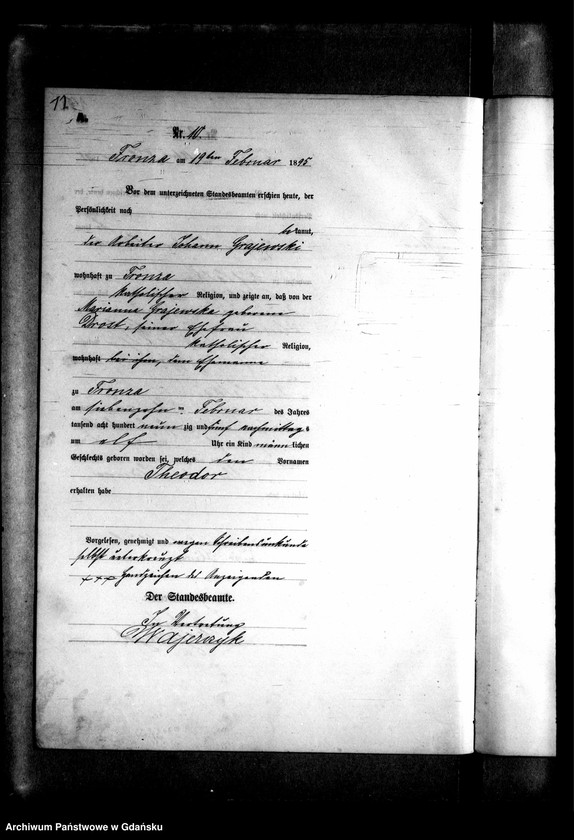 11.
A.
Nr. 10.
Fronza am 19ten Februar 1895
Vor dem unterzeichneten Standesbeamten erschien heute, der
Persönlichkeit nach
kannt,
der Arbeiter Johann Grajewski
wohnhaft zu Fronza
katholischer Religion, und zeigte an, daß von der
Marianna Grajewska geborene
Drost, seiner Ehefrau
katholischer Religion,
wohnhaft bei ihm, dem Ehemanne
zu Fronza
am siebenzehn ten Februar des Jahres
tausend acht hundert neun zig und fünf nachmittag s
um elf Uhr ein Kind männ lichen
Geschlechts geboren worden sei, welches den Vornamen
Theodor
erhalten habe
Vorgelesen, genehmigt und wegen Schreibensunkunde
selbst unterkreuzt
+++ Handzeichen des Anzeigenden
Der Standesbeamte.
In Vertretung
Archiwum Państwowe w Gdańsku